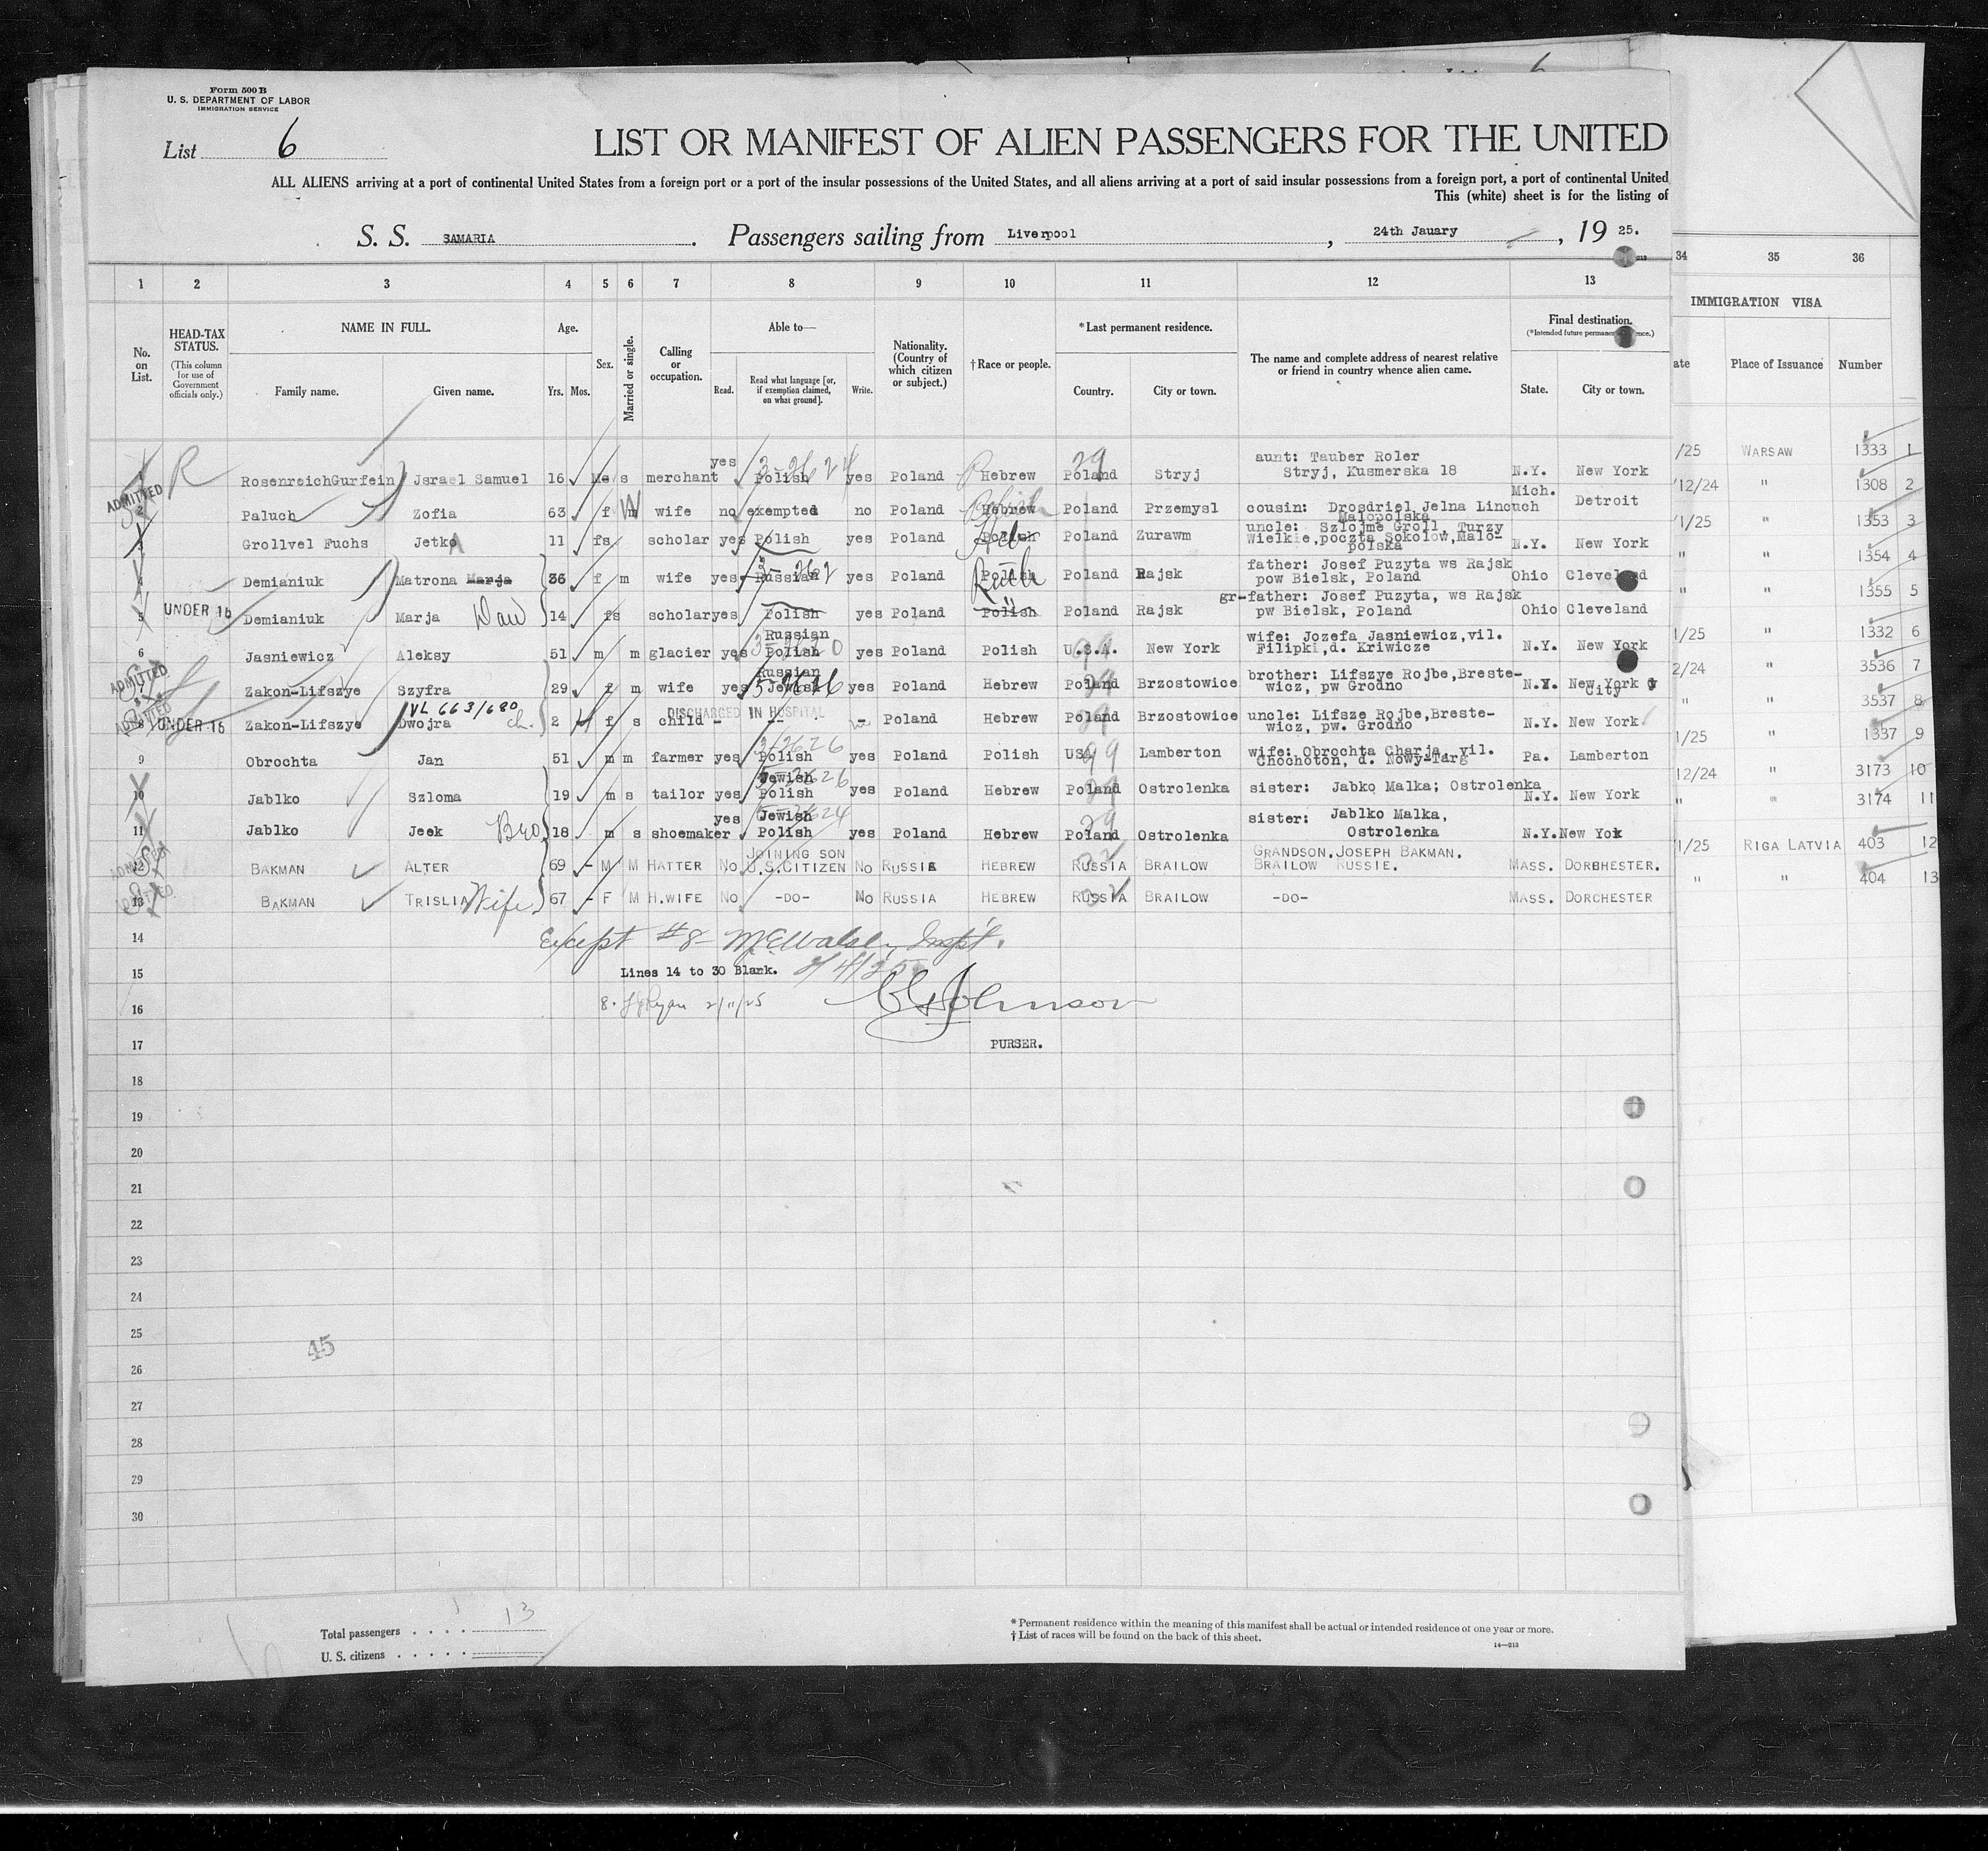 Form 500 B
U. S. DEPARTMENT OF LABOR
IMMIGRATION SERVICE
List 6
LIST OR MANIFEST OF ALIEN PASSENGERS FOR THE UNITED
ALL ALIENS arriving at a port of continental United States from a foreign port or a port of the insular possessions of the United States, and all aliens arriving at a port of said insular possessions from a foreign port, a port of continental United
This (white) sheet is for the listing of
S. S. SAMARIA. Passengers sailing from Liverpool, 24th Jauary, 19 25.
1 2 3 4 5 6 7 8 9 10 11 12 13 34 35 36
No. on List.
HEAD-TAX STATUS. (This column for use of Government officials only.)
NAME IN FULL. Family name. Given name.
Age. Yrs. Mos.
Sex.
Married or single.
Calling or occupation.
Able to— Read. Read what language [or, if exemption claimed, on what ground]. Write.
Nationality. (Country of which citizen or subject.)
†Race or people.
*Last permanent residence. Country. City or town.
The name and complete address of nearest relative or friend in country whence alien came.
Final destination. State. City or town.
IMMIGRATION VISA
ate Place of Issuance Number
R RosenreichGurfein Jsrael Samuel 16 s merchant yes Polish yes Poland Hebrew Poland Stryj aunt: Tauber Roler Stryj, Kusmerska 18 N.Y. New York /25 WARSAW 1333 1
ADMITTED 2 Paluch Zofia 63 f m wife no exempted no Poland Hebrew Poland Przemysl cousin: Drosdriel Jelna Lincuch Malopolska Mich. Detroit /12/24 " 1308 2
3 Grollvel Fuchs Jetka 11 fs scholar yes Polish yes Poland Polish Heb Poland Zurawm uncle: Szlojme Groll, Turzy Wielkie,poczta Sokolow,Malo-polska N.Y. New York /1/25 " 1353 3
4 Demianiuk Matrona Marja 36 f m wife yes Russian yes Poland Polish Ruth Poland Rajsk father: Josef Puzyta ws Rajsk pow Bielsk, Poland Ohio Cleveland " " 1354 4
5 UNDER 16 Demianiuk Marja Dau 14 fs scholar yes Polish yes Poland Polish " Poland Rajsk gr-father: Josef Puzyta, ws Rajsk pw Bielsk, Poland Ohio Cleveland " " 1355 5
6 Jasniewicz Aleksy 51 m m glacier yes Russian Polish yes Poland Polish U.S.A. New York wife: Jozefa Jasniewicz,vil. Filipki,d. Kriwicze N.Y. New York 1/25 " 1332 6
ADMITTED Zakon-Lifszye Szyfra 29 f m wife yes Russian Jewish yes Poland Hebrew Poland Brzostowice brother: Lifszye Rojbe,Breste-wicz, pw Grodno N.Y. New York City 2/24 " 3536 7
ADMITTED 8 UNDER 16 Zakon-Lifszye VL 663/680 Dwojra ch. 2 f s child - DISCHARGED IN HOSPITAL -- - Poland Hebrew Poland Brzostowice uncle: Lifsze Rojbe,Breste-wicz, pw. Grodno N.Y. New York " " 3537 8
9 Obrochta Jan 51 m m farmer yes Polish yes Poland Polish USA Lamberton wife: Obrochta Charja, vil. Chochoton, d. Nowy-Targ Pa. Lamberton 1/25 " 1337 9
10 Jablko Szloma 19 m s tailor yes Jewish Polish yes Poland Hebrew Poland Ostrolenka sister: Jabko Malka; Ostrolenka N.Y. New York 12/24 " 3173 10
11 Jablko Jeek Bro 18 m s shoemaker yes Jewish Polish yes Poland Hebrew Poland Ostrolenka sister: Jablko Malka, Ostrolenka N.Y. New Yok " " 3174 11
12 BAKMAN ALTER 69 - M M HATTER NO JOINING SON U.S.CITIZEN NO RUSSIA HEBREW RUSSIA BRAILOW GRANDSON.JOSEPH BAKMAN. BRAILOW RUSSIE. MASS. DORCHESTER. 1/25 RIGA LATVIA 403 12
13 BAKMAN TRISLIA Wife 67 - F M H.WIFE NO -DO- NO RUSSIA HEBREW RUSSIA BRAILOW -DO- MASS. DORCHESTER " " 404 13
14 Except #8 McWalsh, Insp't.
15 Lines 14 to 30 Blank. 2/4/25
16 8. Ryan 2/11/25 Johnson
17 PURSER.
18
19
20
21
22
23
24
25
45
26
27
28
29
30
Total passengers . . . . 13
U. S. citizens . . . . .
* Permanent residence within the meaning of this manifest shall be actual or intended residence of one year or more.
† List of races will be found on the back of this sheet.
14—213